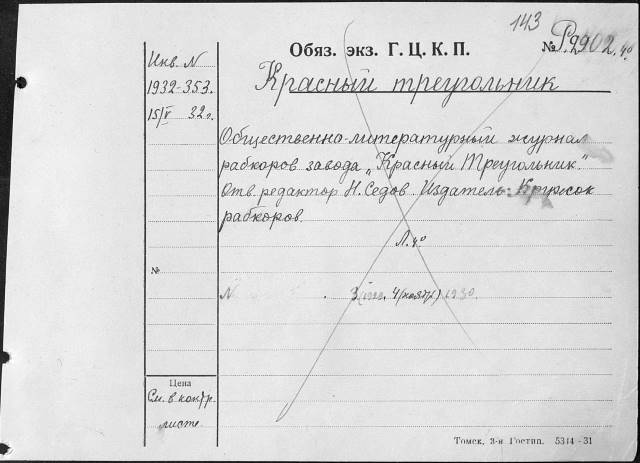 143
Обяз. экз. Г. Ц. К. П. № Р2902.4°
Инв. N
1932-353.
15/V 32 г.
Красный треугольник
Общественно-литературный журнал
рабкоров завода „Красный Треугольник."
Отв. редактор Н. Седов Издатель:
рабкоров.
Л. 4°
№
N 3 4 (ноябрь) 1930.
Цена
См. в контр.
листе
Томск, 3-я Гостип. 5344-31